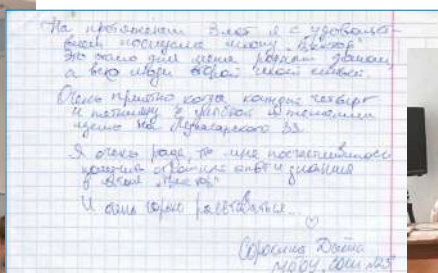 На протяжении 3 лет я с удовольст-
вием посещала школу "Вектор"
Это стало для меня родным домом,
а все люди второй моей семьей.
Очень приятно когда каждый четверг
и пятницу с улыбкой
идешь на Луначарского 33.
Я очень рада, что мне посчастливилось
получить опыт и знания
в школе "Вектор"
И очень горько расставаться...
Сорокина
МБОУ СОШ №25